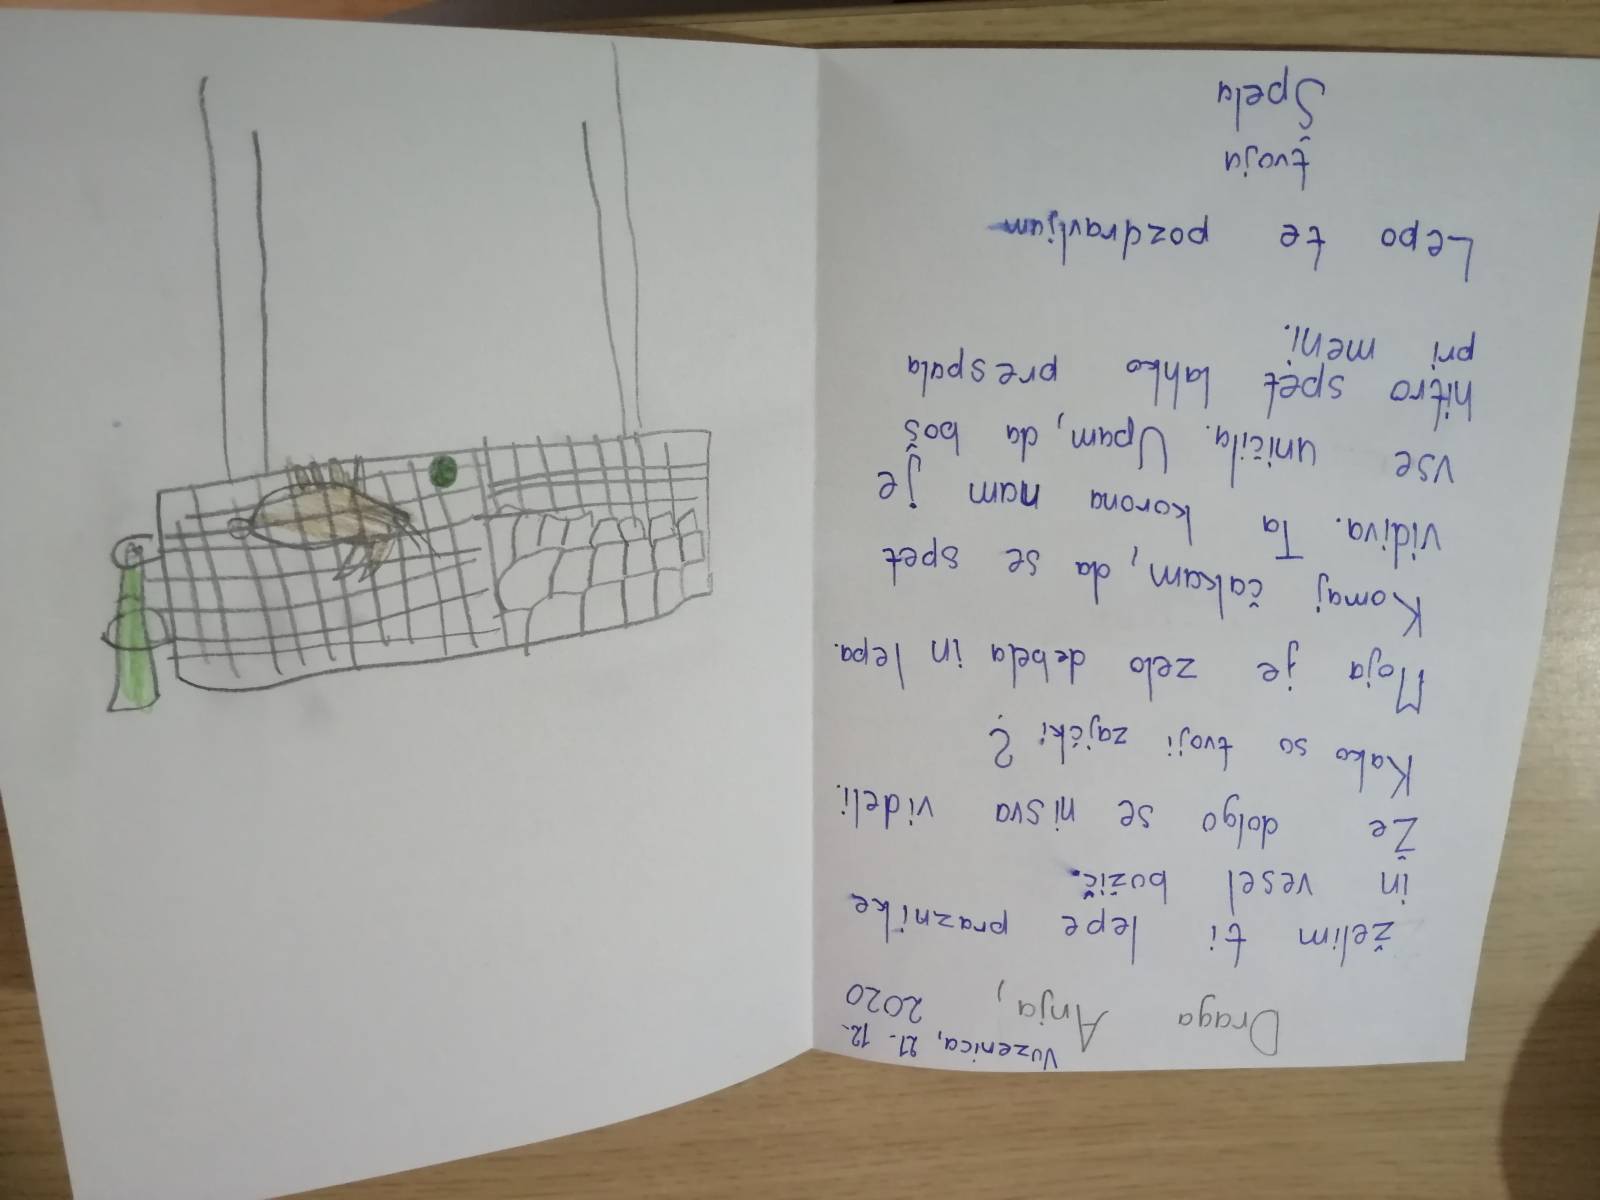 Vuzenica, 21. 12.
2020
Draga Anja,
želim ti lepe praznike
in vesel božič.
Že dolgo se nisva videli.
Kako so tvoji zajčki?
Moja je zelo debela in lepa.
Komaj čakam, da se spet
vidiva. Ta korona nam je
vse uničila. Upam, da boš
hitro spet lahko prespala
pri meni.
Lepo te pozdravljam
tvoja
Špela